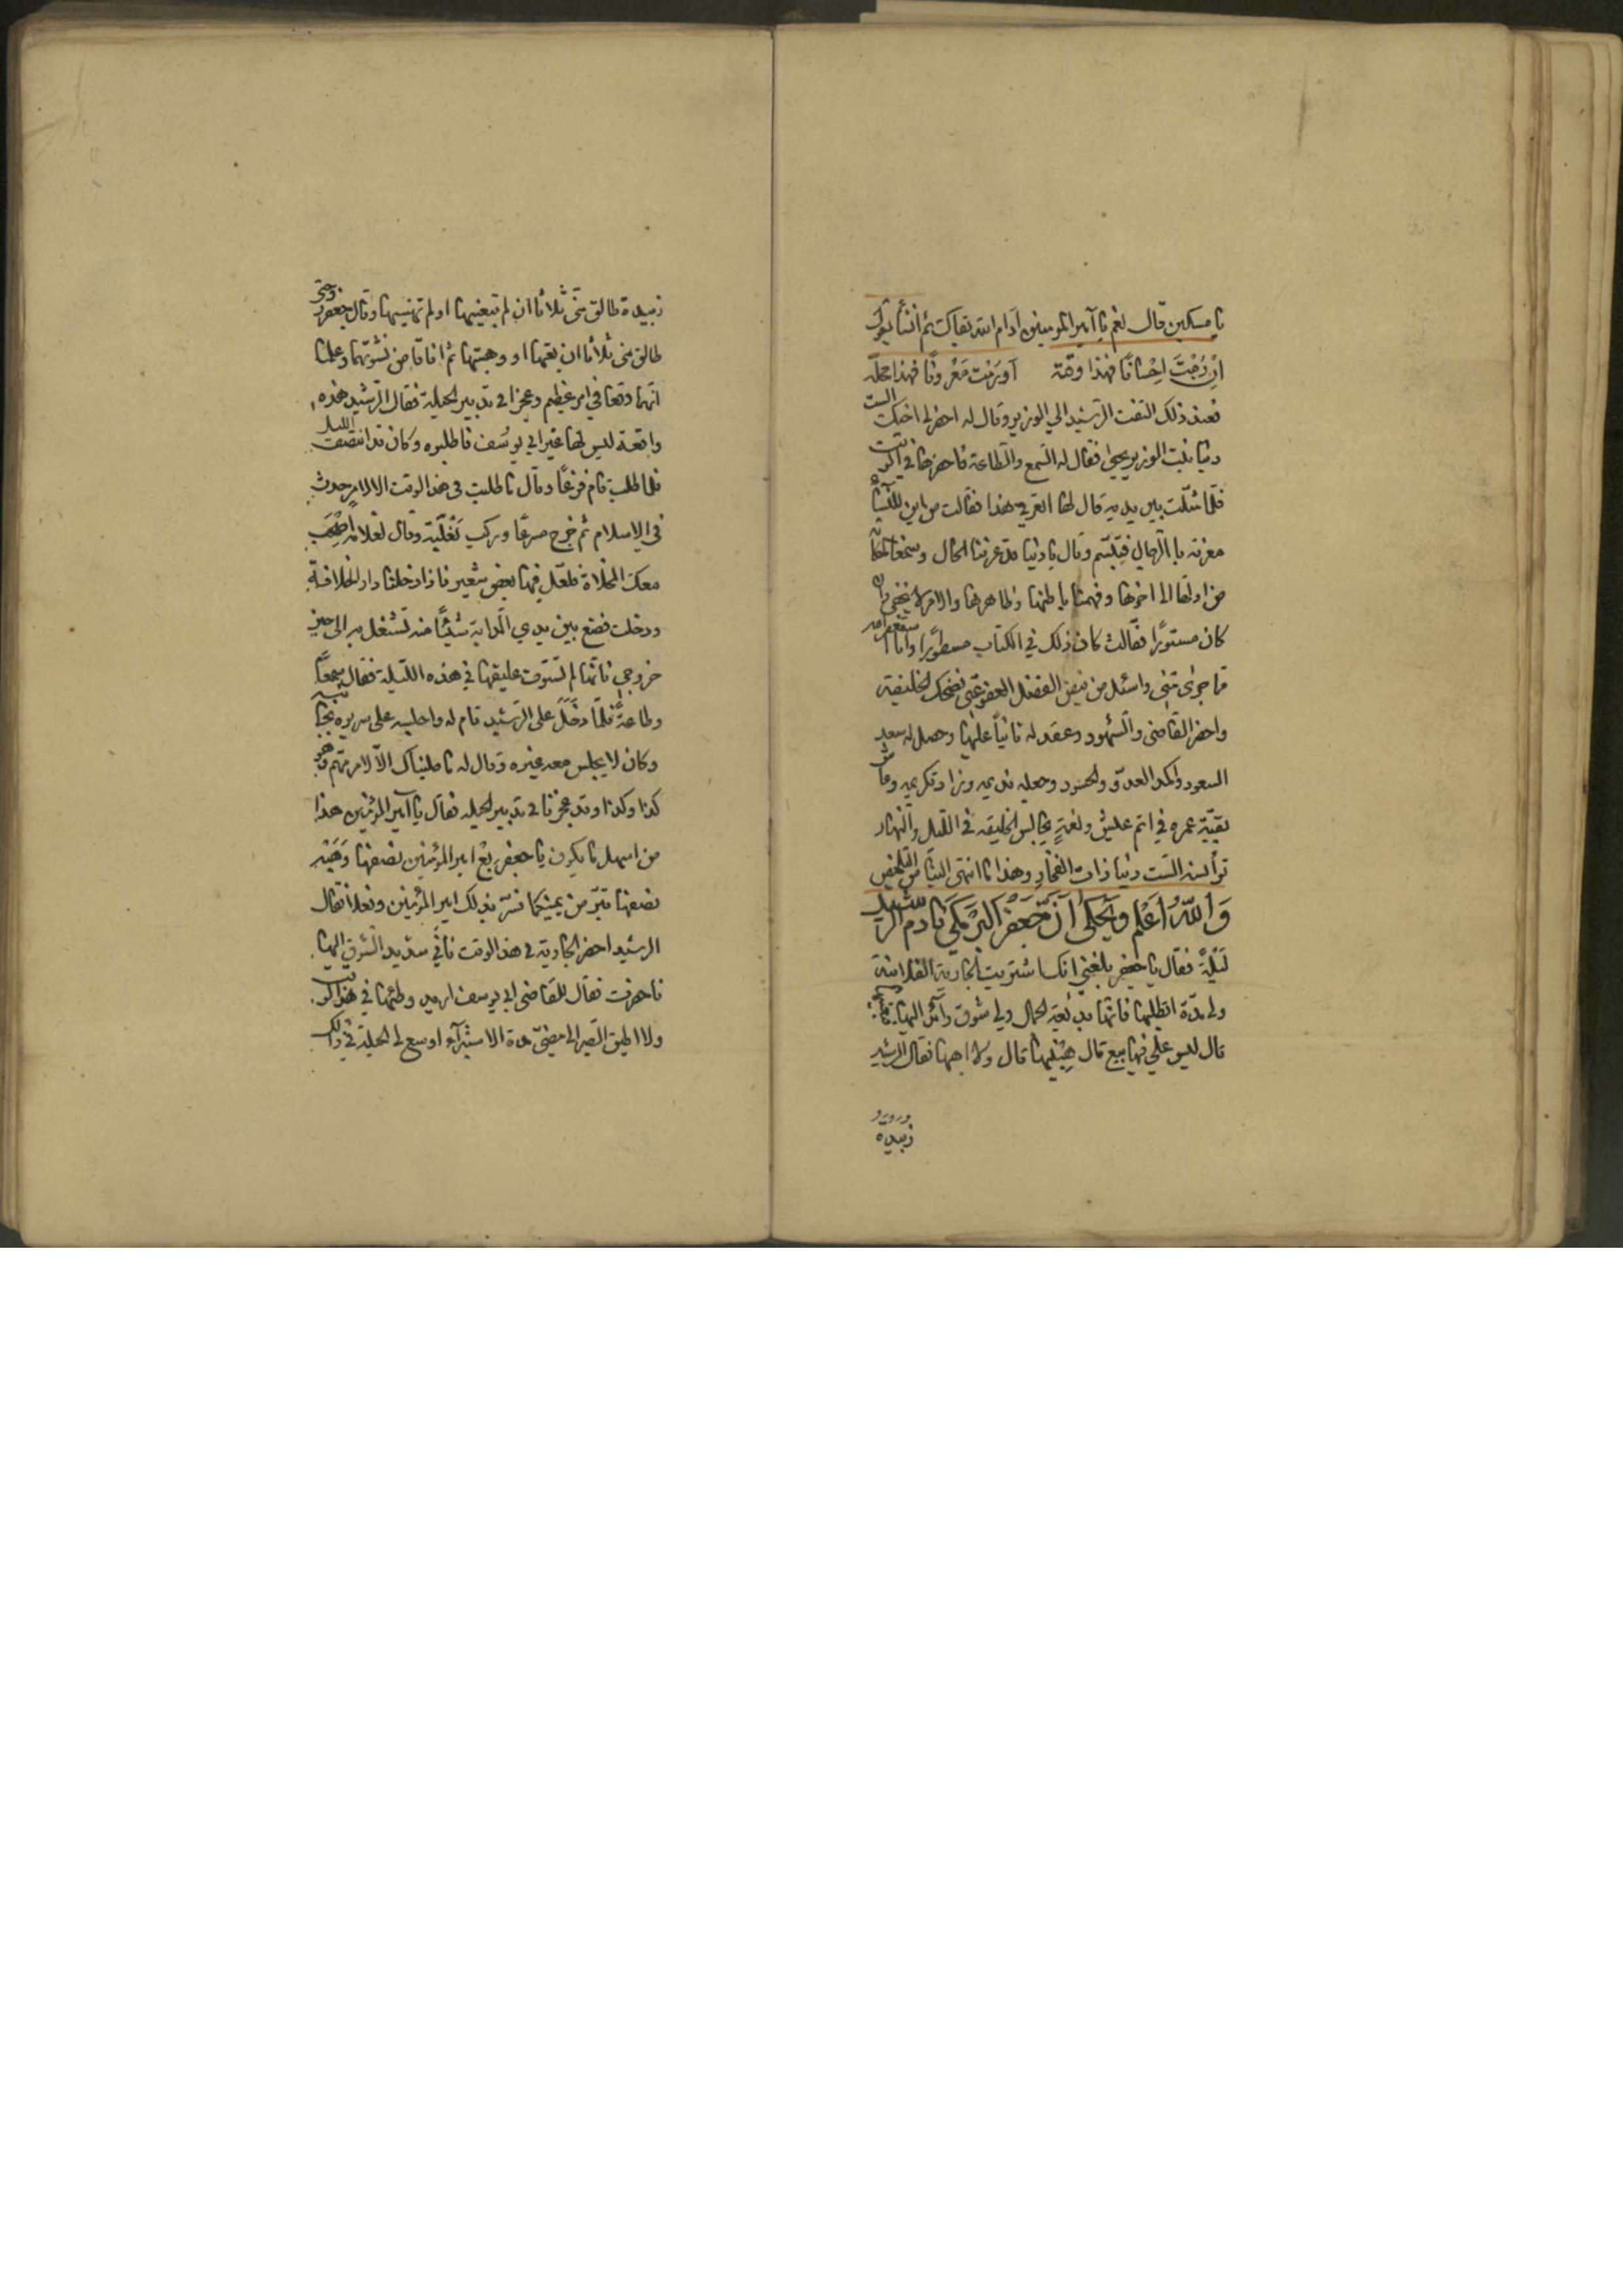 يا مسكين قال نعم يا آمير المومنين آدام الله بقاك ثم انشأ يقول
ان رمت احسانا فهذا وقته آو رمت معروفا فهذا محله
فعند ذلك التفت الرشيد الي الوزير وقال له احضر لي اختك الست
دنيا بنت الوزير يحيى فقال له السمع والطاعة فاحضرها في الوقت
فلما مثلت بين يديه قال لها اتعرفي هذا فقالت من اين للنسا
معرفة با الرجال فتبسم وقال يا دنيا قد عرفنا الحال وسمعنا الحكاية
من اولها الى اخرها وفهمنا باطنها وظاهرها والامر لا يخفى وان
كان مستورًا فقالت كان ذلك في الكتاب مسطورًا وانا استغفر الله
مما جرى منى واسئل من فيض الفضل العفو عنى فضحك الخليفة
واحضر القاضى والشهود وعقد له ثانياً عليها وحصل له سعد
السعود واكمد العدو والحسود وجعله نديمه وزاد تكريمه وعاش
بقيّة عمره في اتم عيش ونعمةٍ يجالس الخليفه في الليل والنهار
توأنسه الست دنيا ذات الفخار وهذا ما انتهى الينا من التلخيص
وَاللهُ اعلم ويحكى آن جعفر البرمكي نادم الرشيد
ليلةً فقال يا جعفر بلغني انك اشتريت الجارية الفلانية
ولى مدّة اتطلبها فانها بديعة الجمال ولي شوق زائد اليها
قال ليس علي فيها بيع قال هبنيها قال ولا اهبها فقال الرشيد
زبيدة
زبيدة طالق منى ثلاثا ان لم تبعنيها او لم تهبنيها وقال جعفر زوجتي
طالق منى ثلاثا ان بعتها او وهبتها ثم افاقا من نشوتهما وعلما
انهما وقعا في امر عظيم وعجزا في تدبير الحيلة فقال الرشيد هذه
واقعة ليس لها غير ابي يوسف فاطلبوه وكان قد انتصف الليل
فلما طلب قام فزعًا وقال ما طلبت في هذا الوقت الا لامر حدث
في الاسلام ثم خرج مسرعًا وركب بغلته وقال لغلامه اصحب
معك المخلاة فلعل فيها بعض شعير فاذا دخلنا دار الخلافة
ودخلت فضع بين يدي الدابة شيئًا منه تشتغل به الى حين
خروجي فانها لم تستوف عليقها في هذه الليلة فقال سمعًا
وطاعةً فلما دخل على الرشيد قام له واجلسه على سريره بجانبه
وكان لا يجلس معه غيره وقال له ما طلبناك الا لامر مهم وهو
كذا وكذا وقد عجزنا في تدبير الحيله فقال يا آمير المؤمنين هذا
من اسهل ما يكون يا جعفر بع امير المؤمنين نصفها وَهَبْه
نصفها تبرّ من يمينكما فسرّ بذلك امير المؤمنين وفعلا فقال
الرشيد احضر الجارية في هذا الوقت فاني شديد الشوق اليها
فاحضرت فقال للقاضى ابى يوسف اريد وطئها في هذا الوقت
ولا اطيق الصبر الى مضىّ مدة الاستبرآء اوسع لى الحيلة في ذلك